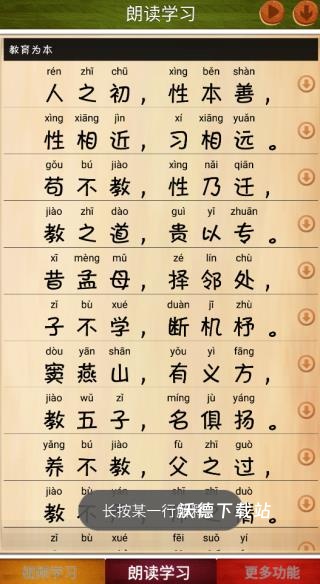 朗读学习
教育为本
rén zhī chū xìng běn shàn
人之初，性本善，
xìng xiāng jìn xí xiāng yuǎn
性相近，习相远。
gǒu bú jiào xìng nǎi qiān
苟不教，性乃迁，
jiào zhī dào guì yǐ zhuān
教之道，贵以专。
xī mèng mǔ zé lín chù
昔孟母，择邻处，
zǐ bù xué duàn jī zhù
子不学，断机杼。
dòu yān shān yǒu yì fāng
窦燕山，有义方，
jiào wǔ zǐ míng jù yáng
教五子，名俱扬。
yǎng bú jiào fù zhī guò
养不教，父之过，
jiào bù
教不
长按某一行
沃德下载站
zǐ bù xué fēi suǒ yí
朗读学习
更多功能